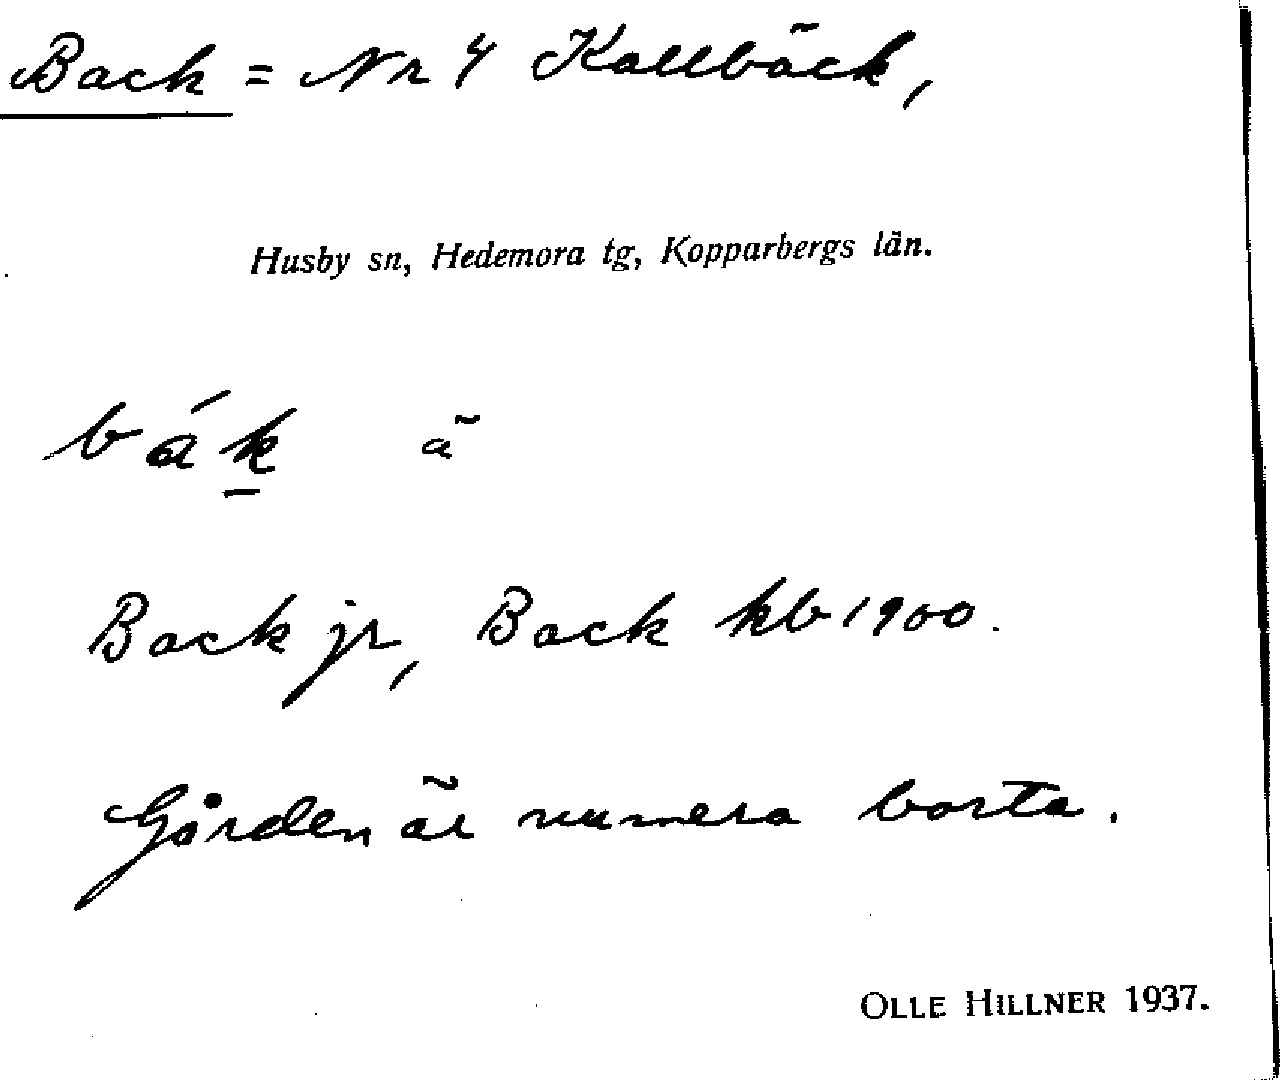 Back = Nr 4 Kallbäck,
Husby sn, Hedemora tg, Kopparbergs län.
bák ä
Back jr, Back kb 1900.
Gården är numera borta.
OLLE HILLNER 1937.